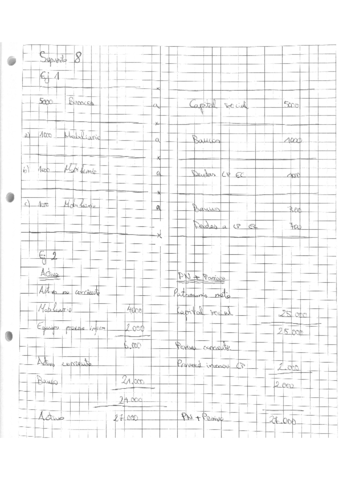 Ej 1
5000 Bancos a Capital social 5000
a) 1000 Mobiliario a Bancos 1000
b) 100 Mobiliario a Deudas CP 100
c) Mobiliario a Bancos
Deudas a CP
Ej 2
Activo PN + Pasivo
Activo no corriente Patrimonio neto
Mobiliario 4000 Capital social 25.000
Equipos proceso inform 2.000 25.000
6.000 Pasivo corriente
Activo corriente Proveed CP 2.000
Bancos 21.000 2.000
21.000
Activo 27.000 PN + Pasivo 27.000